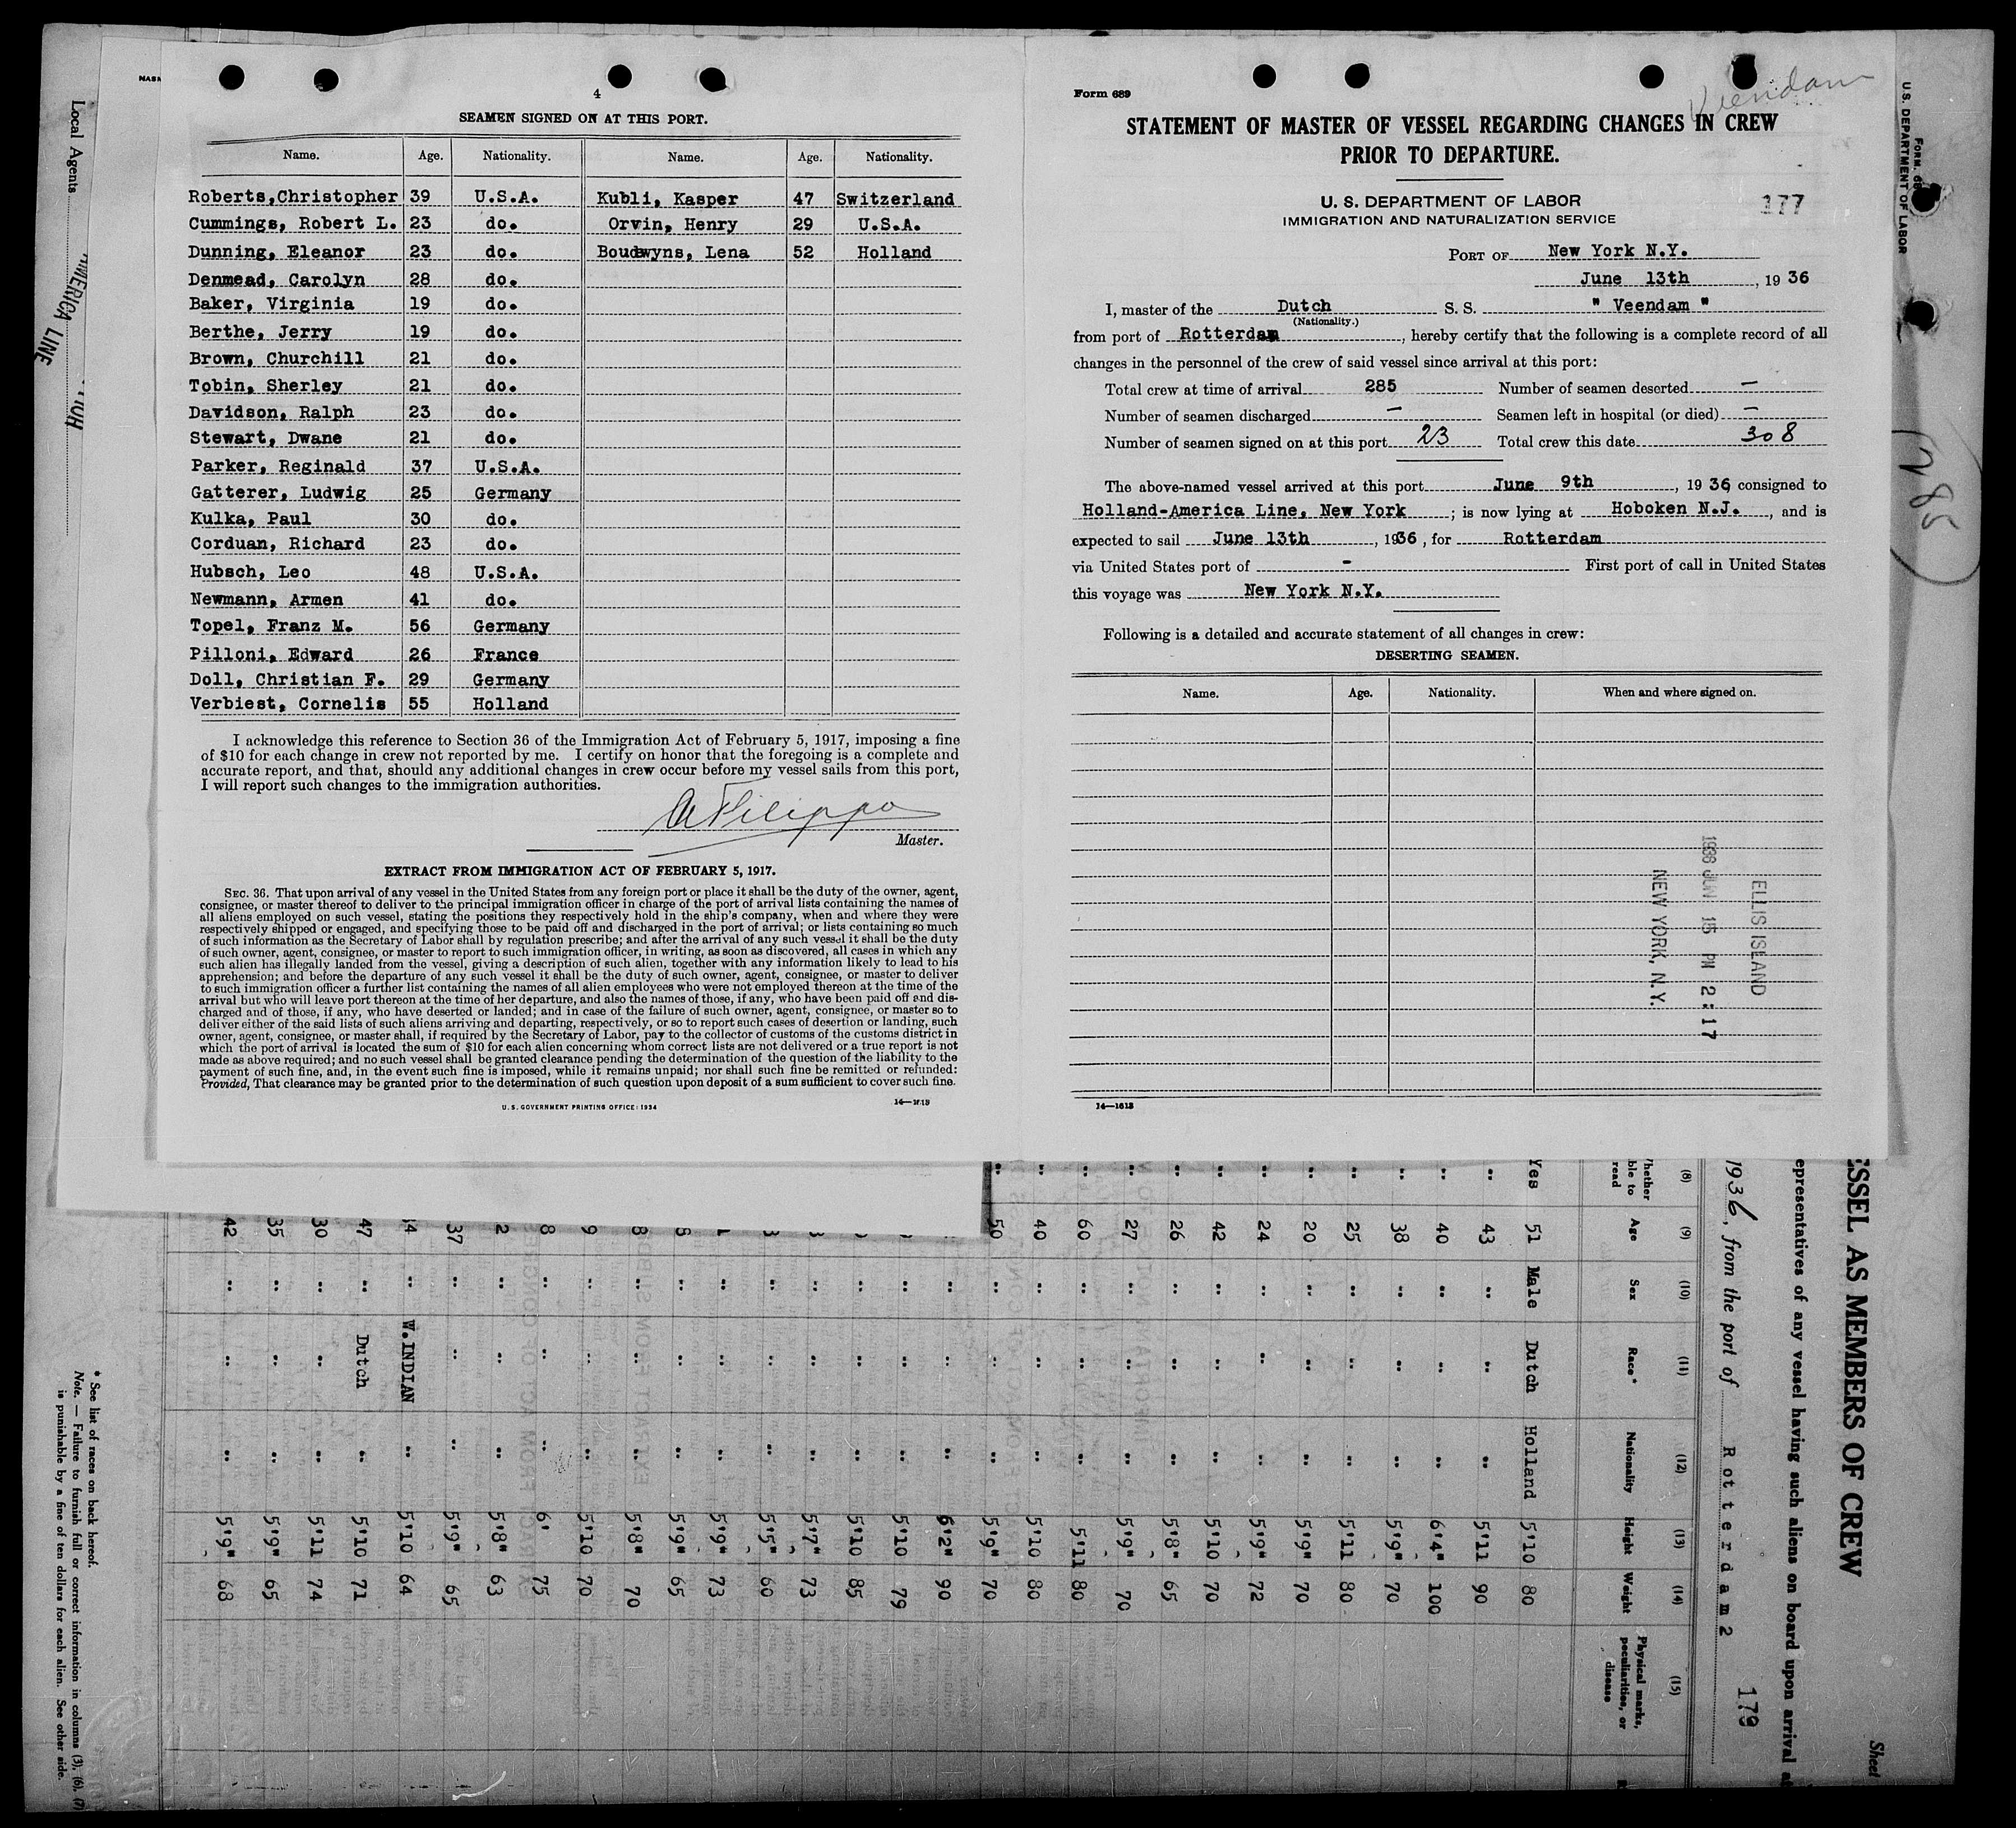 4
SEAMEN SIGNED ON AT THIS PORT.
Name. Age. Nationality. Name. Age. Nationality.
Roberts,Christopher 39 U.S.A. Kubli, Kasper 47 Switzerland
Cummings, Robert L. 23 do. Orvin, Henry 29 U.S.A.
Dunning, Eleanor 23 do. Boudewyns, Lena 52 Holland
Denmead, Carolyn 28 do.
Baker, Virginia 19 do.
Berthe, Jerry 19 do.
Brown, Churchill 21 do.
Tobin, Sherley 21 do.
Davidson, Ralph 23 do.
Stewart, Dwane 21 do.
Parker, Reginald 37 U.S.A.
Gatterer, Ludwig 25 Germany
Kulka, Paul 30 do.
Corduan, Richard 23 do.
Hubsch, Leo 48 U.S.A.
Newmann, Armen 41 do.
Topel, Franz M. 56 Germany
Pilloni, Edward 26 France
Doll, Christian F. 29 Germany
Verbiest, Cornelis 55 Holland
I acknowledge this reference to Section 36 of the Immigration Act of February 5, 1917, imposing a fine
of $10 for each change in crew not reported by me. I certify on honor that the foregoing is a complete and
accurate report, and that, should any additional changes in crew occur before my vessel sails from this port,
I will report such changes to the immigration authorities.
Filippo
Master.
EXTRACT FROM IMMIGRATION ACT OF FEBRUARY 5, 1917.
SEC. 36. That upon arrival of any vessel in the United States from any foreign port or place it shall be the duty of the owner, agent,
consignee, or master thereof to deliver to the principal immigration officer in charge of the port of arrival lists containing the names of
all aliens employed on such vessel, stating the positions they respectively hold in the ship's company, when and where they were
respectively shipped or engaged, and specifying those to be paid off and discharged in the port of arrival; or lists containing so much
of such information as the Secretary of Labor shall by regulation prescribe; and after the arrival of any such vessel it shall be the duty
of such owner, agent, consignee, or master to report to such immigration officer, in writing, as soon as discovered, all cases in which any
such alien has illegally landed from the vessel, giving a description of such alien, together with any information likely to lead to his
apprehension; and before the departure of any such vessel it shall be the duty of such owner, agent, consignee, or master to deliver
to such immigration officer a further list containing the names of all alien employees who were not employed thereon at the time of the
arrival but who will leave port thereon at the time of her departure, and also the names of those, if any, who have been paid off and dis-
charged and of those, if any, who have deserted or landed; and in case of the failure of such owner, agent, consignee, or master so to
deliver either of the said lists of such aliens arriving and departing, respectively, or so to report such cases of desertion or landing, such
owner, agent, consignee, or master shall, if required by the Secretary of Labor, pay to the collector of customs of the customs district in
which the port of arrival is located the sum of $10 for each alien concerning whom correct lists are not delivered or a true report is not
made as above required; and no such vessel shall be granted clearance pending the determination of the question of the liability to the
payment of such fine, and, in the event such fine is imposed, while it remains unpaid; nor shall such fine be remitted or refunded:
Provided, That clearance may be granted prior to the determination of such question upon deposit of a sum sufficient to cover such fine.
U. S. GOVERNMENT PRINTING OFFICE: 1934
14—1613
Form 689
Veendam
STATEMENT OF MASTER OF VESSEL REGARDING CHANGES IN CREW
PRIOR TO DEPARTURE.
U. S. DEPARTMENT OF LABOR
IMMIGRATION AND NATURALIZATION SERVICE
177
PORT OF New York N.Y.
June 13th, 1936
I, master of the Dutch S. S. " Veendam "
(Nationality.)
from port of Rotterdam, hereby certify that the following is a complete record of all
changes in the personnel of the crew of said vessel since arrival at this port:
Total crew at time of arrival 285 Number of seamen deserted —
Number of seamen discharged — Seamen left in hospital (or died) —
Number of seamen signed on at this port 23 Total crew this date 308
The above-named vessel arrived at this port June 9th, 1936, consigned to
Holland-America Line, New York; is now lying at Hoboken N.J., and is
expected to sail June 13th, 1936, for Rotterdam
via United States port of - First port of call in United States
this voyage was New York N.Y.
Following is a detailed and accurate statement of all changes in crew:
DESERTING SEAMEN.
Name. Age. Nationality. When and where signed on.
ELLIS ISLAND
1936 JUN 15 PM 2:17
NEW YORK, N.Y.
14—1613
U.S. DEPARTMENT OF LABOR
285
Local Agents
AMERICA LINE
ESSEL AS MEMBERS OF CREW
Sheet
epresentatives of any vessel having such aliens on board upon arrival at
1936, from the port of Rotterdam 2
179
(8) (9) (10) (11) (12) (13) (14) (15)
Whether able to read Age Sex Race* Nationality Height Weight Physical marks, peculiarities, or disease
Yes 51 Male Dutch Holland 5'10 80
" 43 " " " 5'11 90
" 40 " " " 6'4" 100
" 38 " " " 5'9" 70
" 25 " " " 5'11 80
" 20 " " " 5'9" 70
" 24 " " " 5'9" 72
" 42 " " " 5'10 70
" 26 " " " 5'8" 65
" 27 " " " 5'9" 70
" 60 " " " 5'11 80
" 40 " " " 5'10 80
" 50 " " " 5'9" 70
" " " 6'2" 90
" " " 5'10 79
" " " 5'10 85
" " " 5'7" 73
" " " 5'5" 60
" " " 5'9" 73
" " " 5'9" 65
" " " 5'8" 70
" " " 5'10 70
" " " 6' 75
" " " 5'8" 63
37 " " " 5'9" 65
" W.INDIAN " 5'10 64
47 " Dutch " 5'10 71
30 " " " 5'11 74
35 " " " 5'9" 65
42 " " " 5'9" 68
* See list of races on back hereof.
Note. — Failure to furnish full or correct information in columns (3), (6), (7)
is punishable by a fine of ten dollars for each alien. See other side.